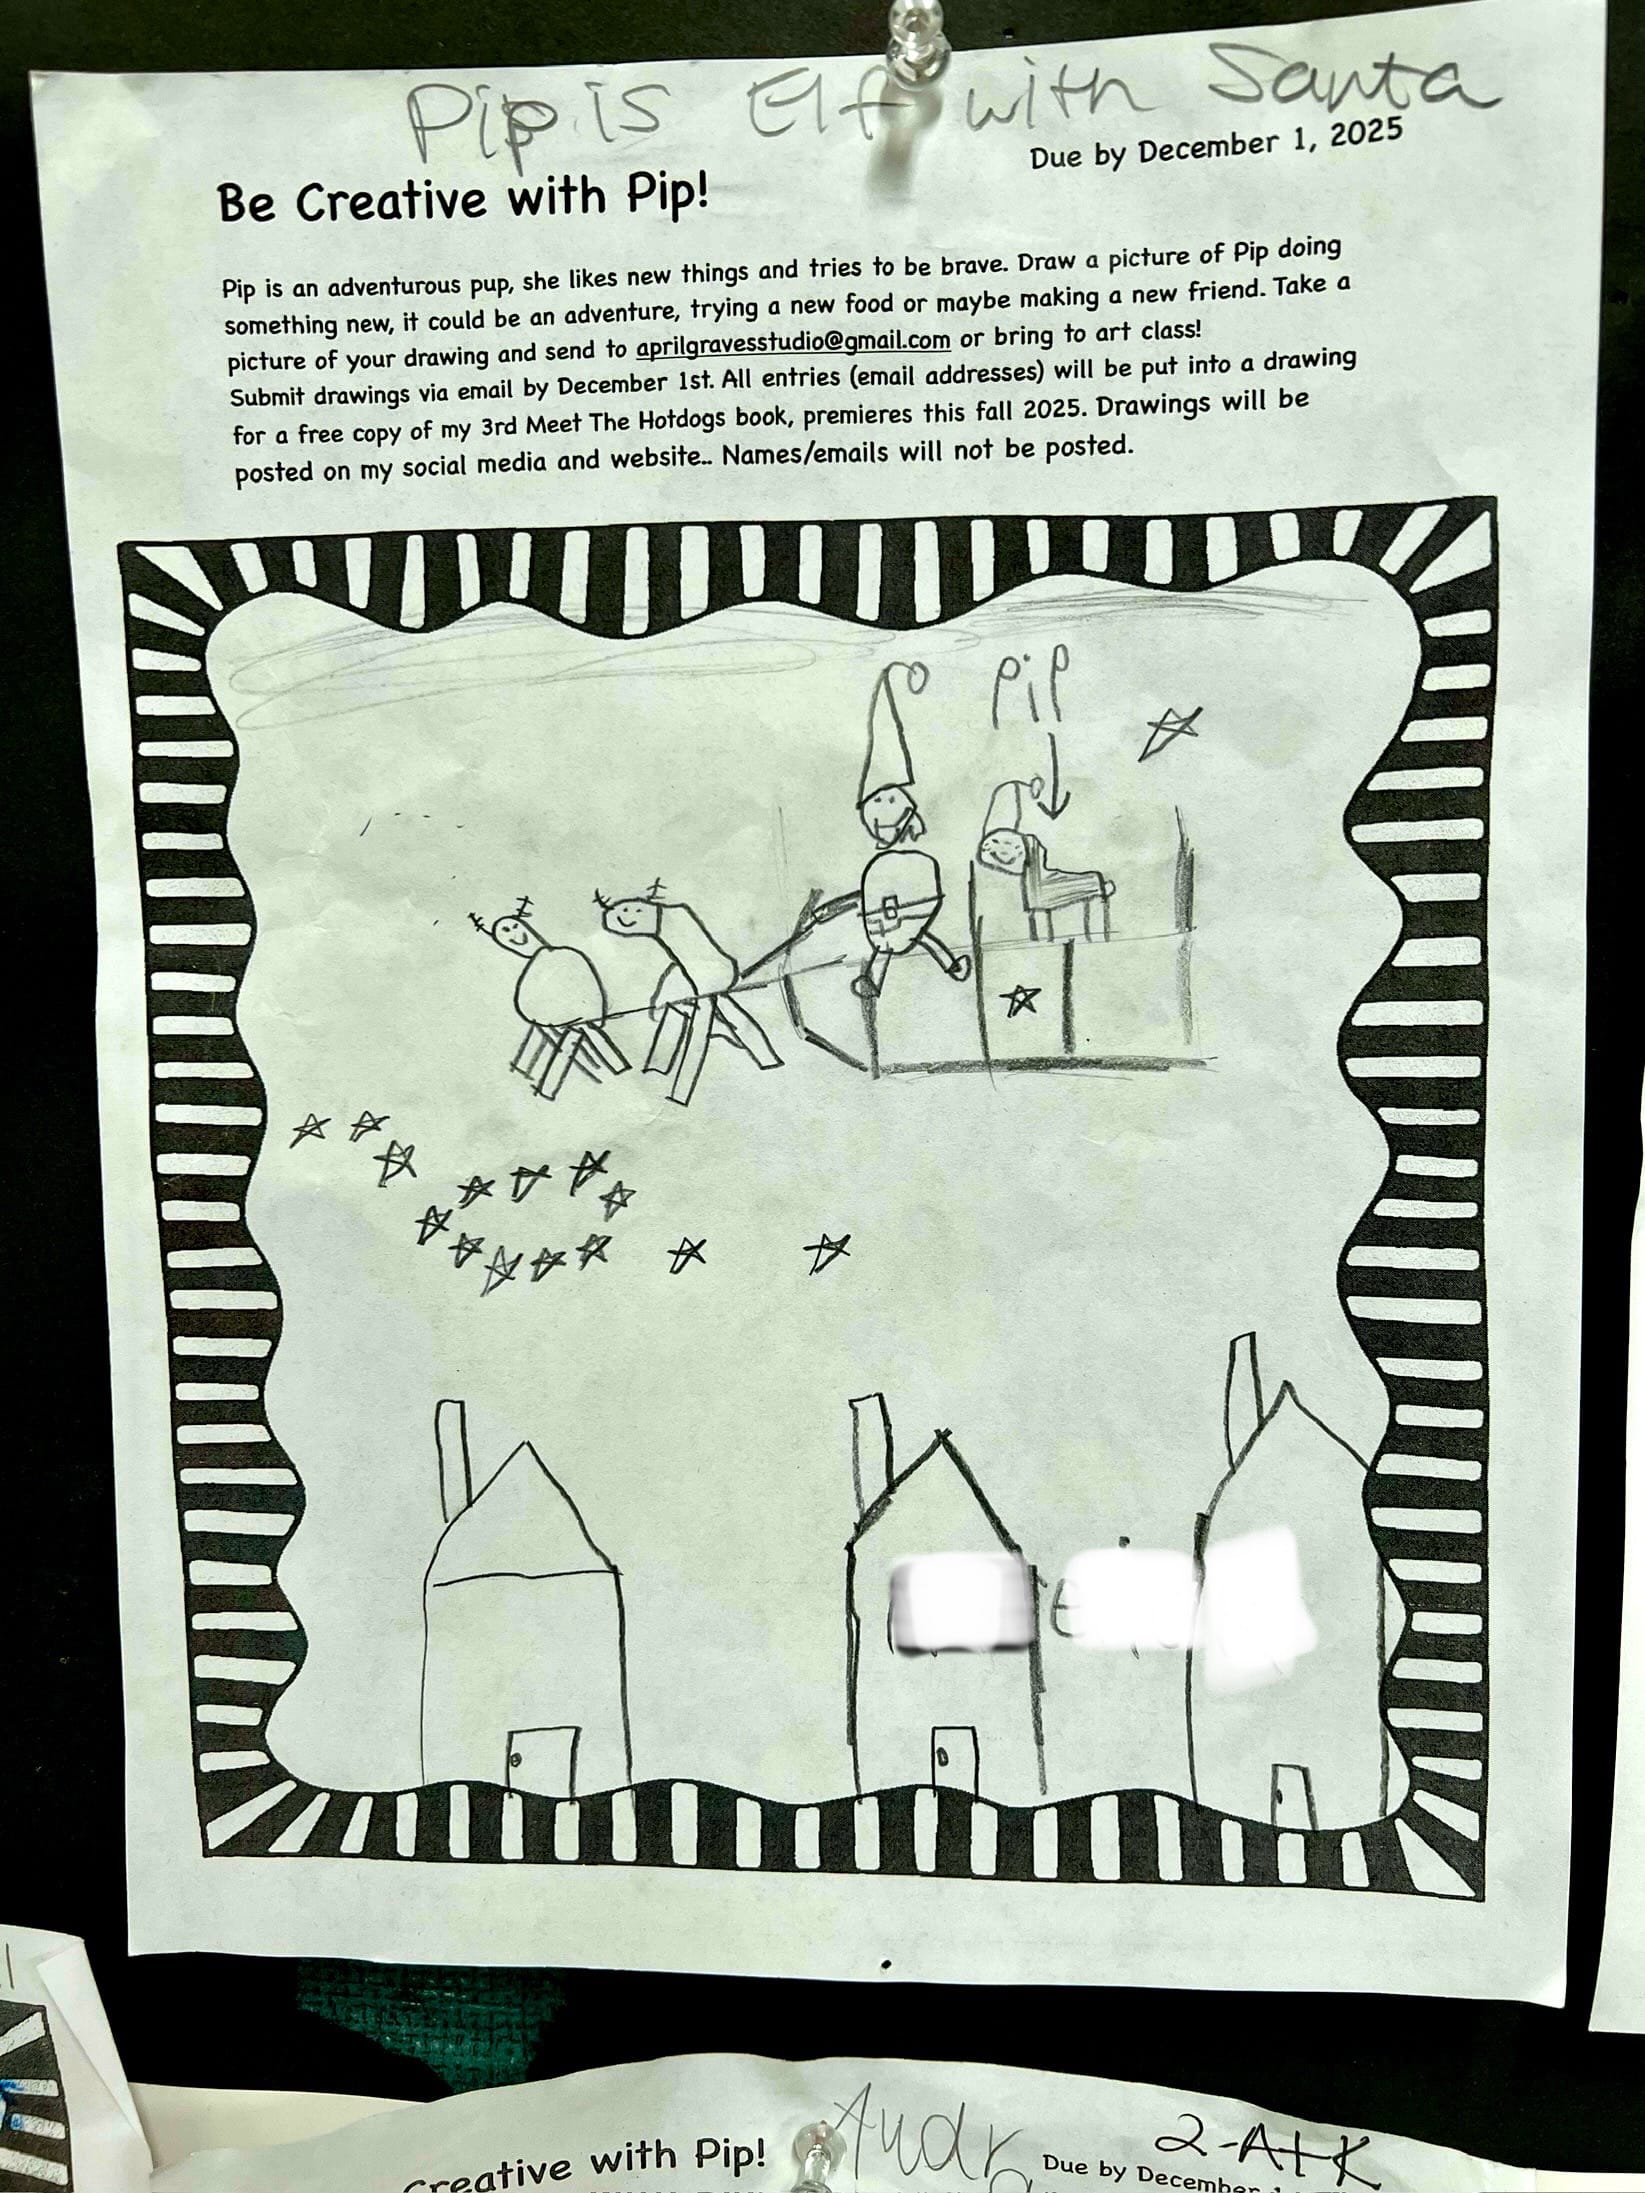 Pip is Elf with Santa
Due by December 1, 2025
Be Creative with Pip!
Pip is an adventurous pup, she likes new things and tries to be brave. Draw a picture of Pip doing
something new, it could be an adventure, trying a new food or maybe making a new friend. Take a
picture of your drawing and send to aprilgravesstudio@gmail.com or bring to art class!
Submit drawings via email by December 1st. All entries (email addresses) will be put into a drawing
for a free copy of my 3rd Meet The Hotdogs book, premieres this fall 2025. Drawings will be
posted on my social media and website.. Names/emails will not be posted.
Pip
2-AtK
Creative with Pip!
Due by December